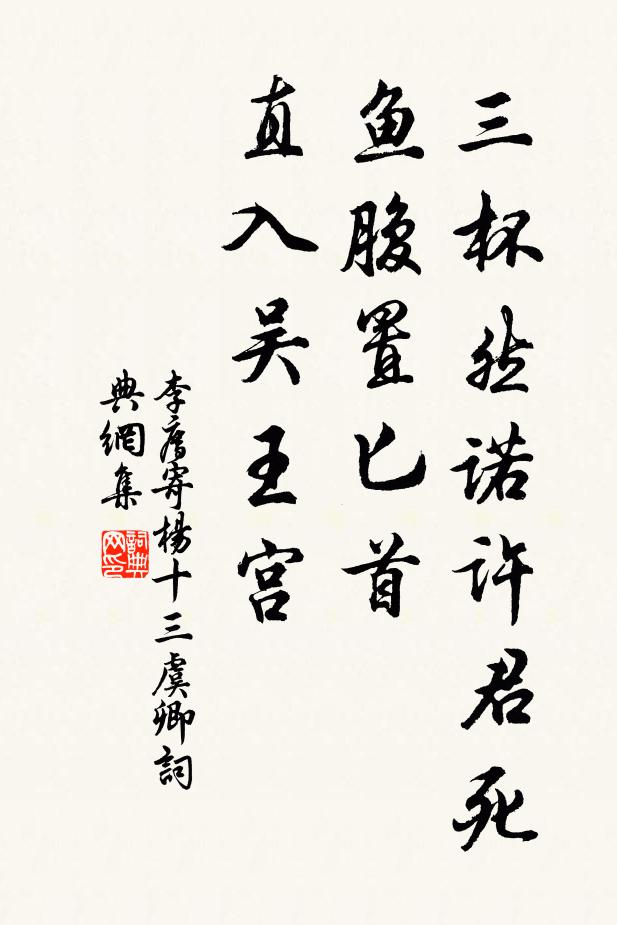 三杯然诺许君死
鱼腹置匕首
直入吴王宫
李廌寄楊十三虞卿詞
典網集
詞典网印